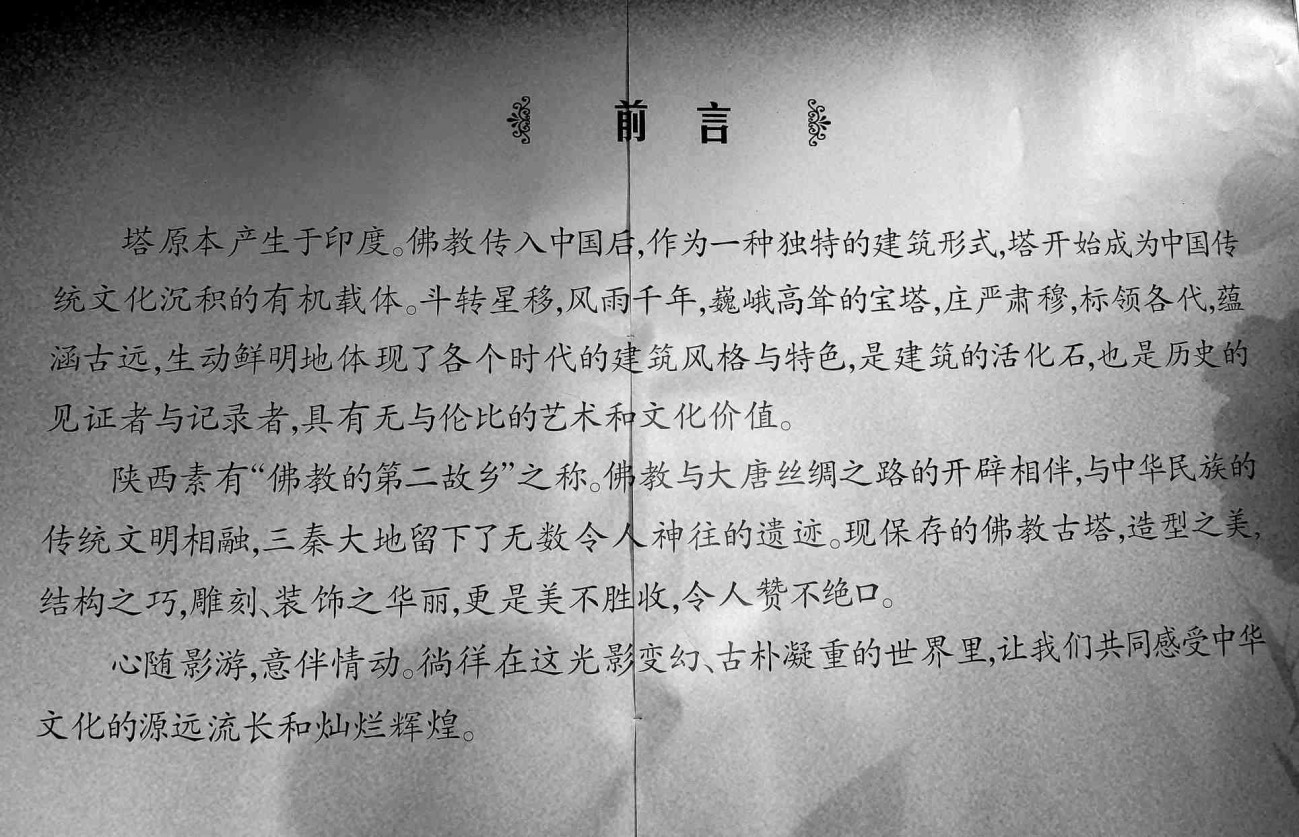 前言
塔原本产生于印度。佛教传入中国后,作为一种独特的建筑形式,塔开始成为中国传
统文化沉积的有机载体。斗转星移,风雨千年,巍峨高耸的宝塔,庄严肃穆,标领各代,蕴
涵古远,生动鲜明地体现了各个时代的建筑风格与特色,是建筑的活化石,也是历史的
见证者与记录者,具有无与伦比的艺术和文化价值。
陕西素有“佛教的第二故乡”之称。佛教与大唐丝绸之路的开辟相伴,与中华民族的
传统文明相融,三秦大地留下了无数令人神往的遗迹。现保存的佛教古塔,造型之美,
结构之巧,雕刻、装饰之华丽,更是美不胜收,令人赞不绝口。
心随影游,意伴情动。徜徉在这光影变幻、古朴凝重的世界里,让我们共同感受中华
文化的源远流长和灿烂辉煌。